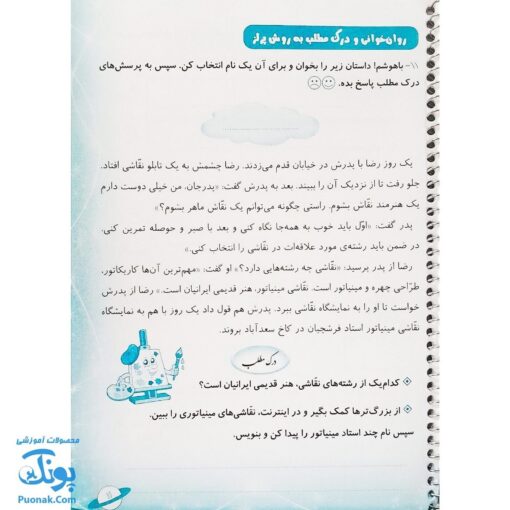 روان‌خوانی و درک مطلب به روش پرلز
۱۱- باهوشم! داستان زیر را بخوان و برای آن یک نام انتخاب کن. سپس به پرسش‌های
درک مطلب پاسخ بده.
یک روز رضا با پدرش در خیابان قدم می‌زدند. رضا چشمش به یک تابلو نقّاشی افتاد.
جلو رفت تا از نزدیک آن را ببیند. بعد به پدرش گفت: «پدرجان، من خیلی دوست دارم
یک هنرمند نقّاش بشوم. راستی چگونه می‌توانم یک نقّاش ماهر بشوم؟»
پدر گفت: «اوّل باید خوب به همه‌جا نگاه کنی و بعد با صبر و حوصله تمرین کنی.
در ضمن باید رشته‌ی مورد علاقه‌ات در نقّاشی را انتخاب کنی.»
رضا از پدر پرسید: «نقّاشی چه رشته‌هایی دارد؟» او گفت: «مهم‌ترین آن‌ها کاریکاتور،
طرّاحی چهره و مینیاتور است. نقّاشی مینیاتور، هنر قدیمی ایرانیان است.» رضا از پدرش
خواست تا او را به نمایشگاه نقّاشی ببرد. پدرش هم قول داد یک روز با هم به نمایشگاه
نقّاشی مینیاتور استاد فرشچیان در کاخ سعدآباد بروند.
درک مطلب
کدام‌یک از رشته‌های نقّاشی، هنر قدیمی ایرانیان است؟
از بزرگ‌ترها کمک بگیر و در اینترنت، نقّاشی‌های مینیاتوری را ببین.
سپس نام چند استاد مینیاتور را پیدا کن و بنویس.
محصولات آموزشی
پونک
Puonak.Com